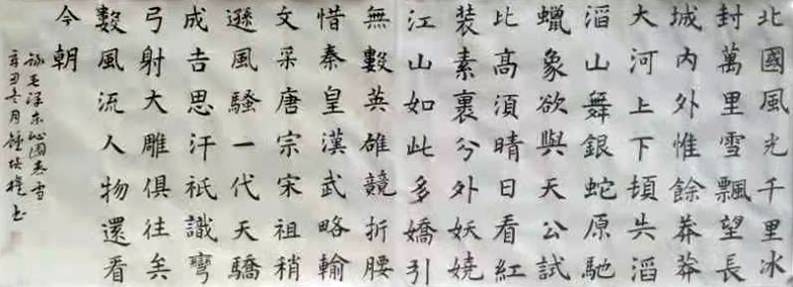 北國風光千里冰
封萬里雪飄望長
城内外惟餘莽莽
大河上下頓失滔
滔山舞銀蛇原馳
蠟象欲與天公試
比高須晴日看紅
裝素裹分外妖嬈
江山如此多嬌引
無數英雄競折腰
惜秦皇漢武略輸
文采唐宗宋祖稍
遜風騷一代天驕
成吉思汗祇識彎
弓射大雕俱往矣
數風流人物還看
今朝
毛澤东沁園春雪
辛丑冬月